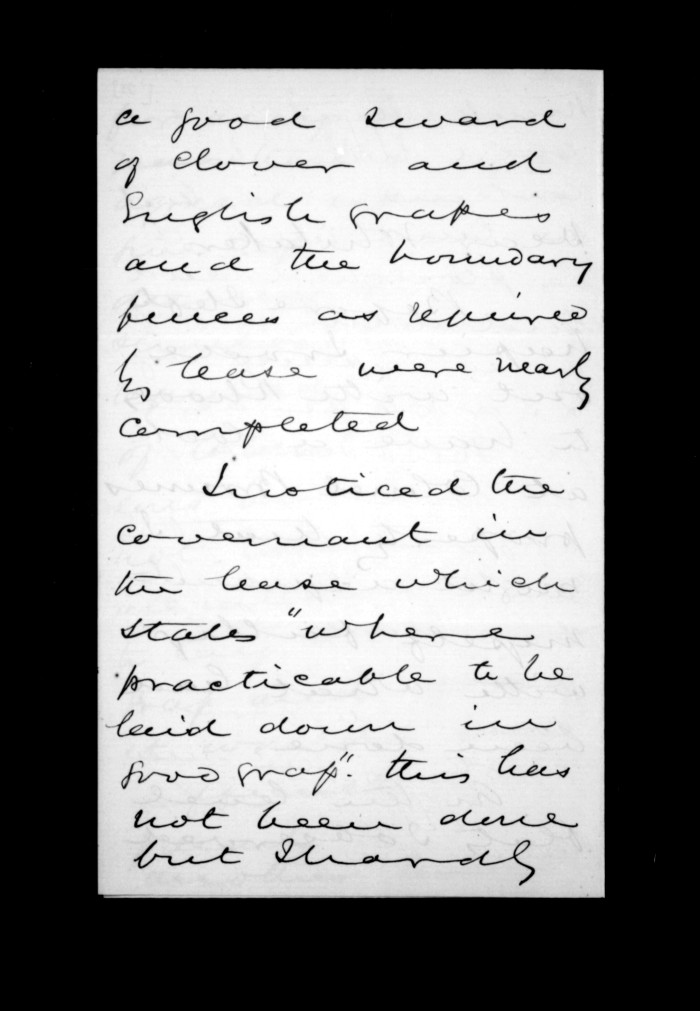 a good sward
of clover and
English grasses
and the boundary
fences as required
by lease were nearly
completed
I noticed the
covenant in
the lease which
states "where
practicable to be
laid down in
good grass". this has
not been done
but I hardly